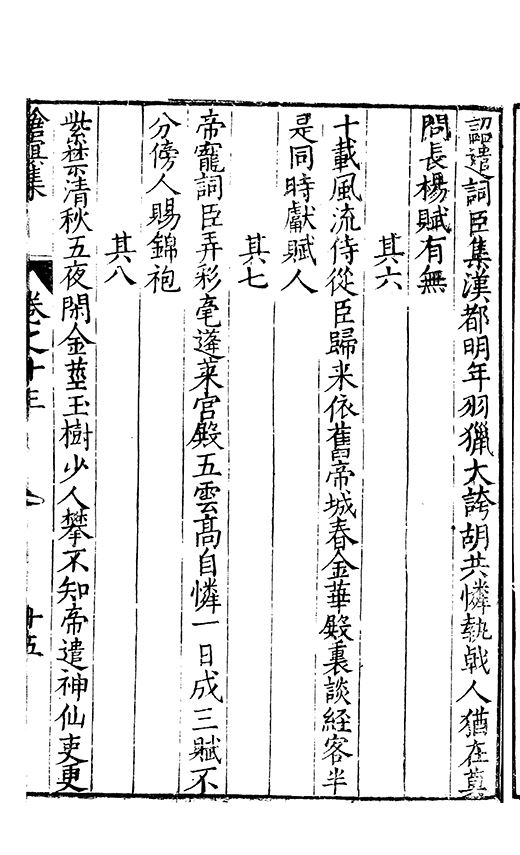 詔遣詞臣集漢都明年羽獵大誇胡共憐執戟人猶在莫
問長楊賦有無
其六
十載風流侍從臣歸来依舊帝城春金華殿裏談経客半
是同時獻賦人
其七
帝寵詞臣弄彩毫蓬萊宮殿五雲高自憐一日成三賦不
分傍人賜錦袍
其八
紫禁清秋五夜閑金莖玉樹少人攀不知帝遣神仙吏更
滄溟集
卷之十
十五